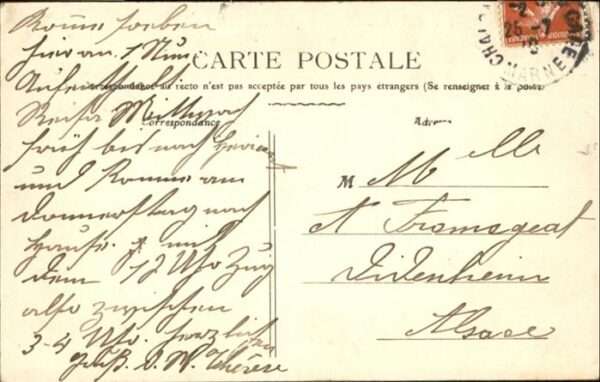 Komme soeben
hier an. 1 Stun
Aufenthalt.
Reise Mittwoch
früh bis nach
und komme am
Donnerstag nach
Hause. mit
dem 12 Uhr Zug
also zwischen
3-4 Uhr. herzlichen
Gruß. Thérèse
CARTE POSTALE
Correspondance au recto n'est pas acceptée par tous les pays étrangers (Se renseigner à la poste)
Correspondance
Adresse
M M Mlle
A Fromageat
Didenheim
Alsace
25 -7
MARNE